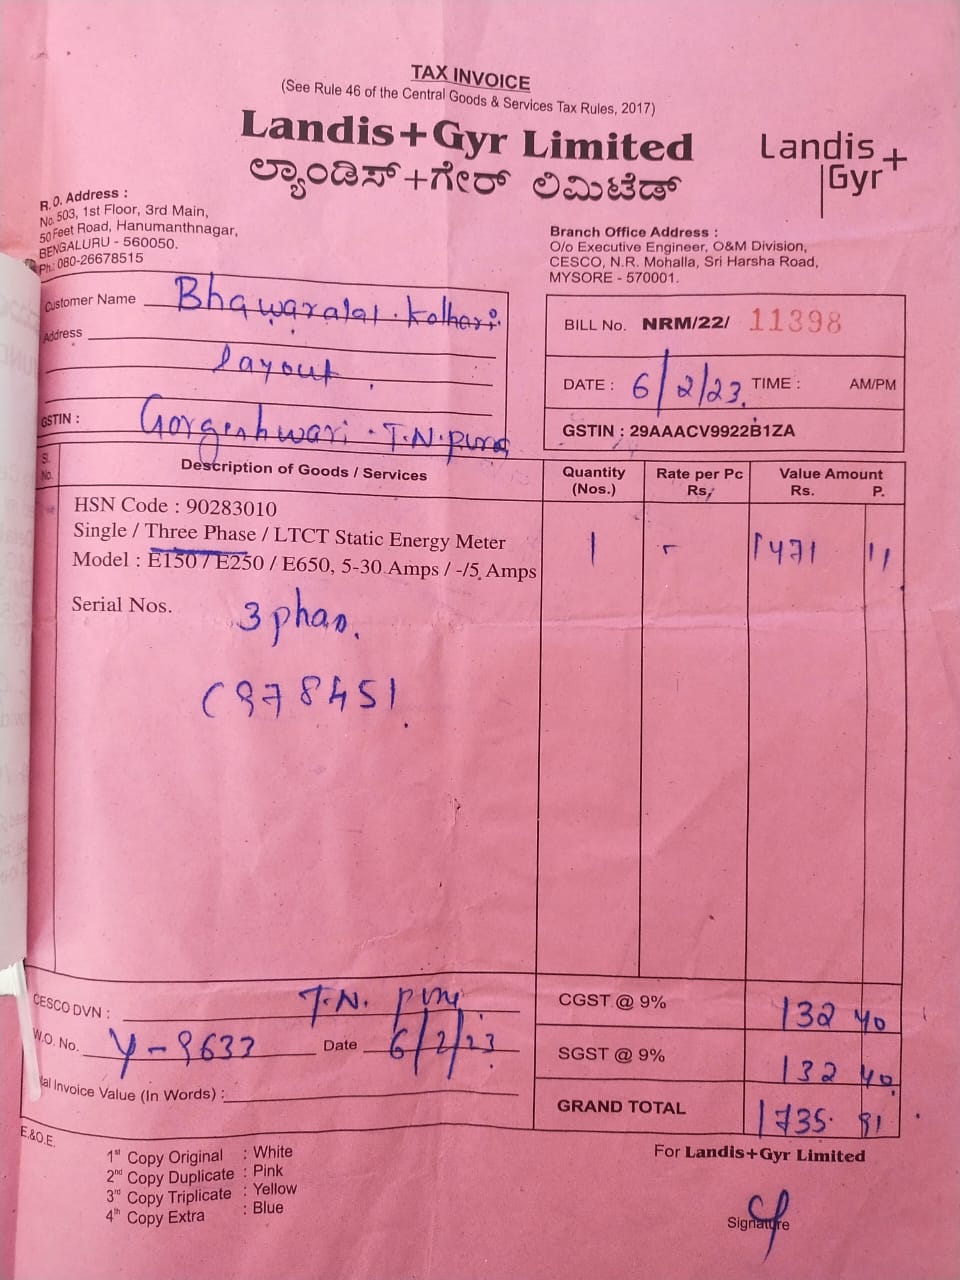 TAX INVOICE
(See Rule 46 of the Central Goods & Services Tax Rules, 2017)
Landis+Gyr Limited
ಲ್ಯಾಂಡಿಸ್+ಗೇರ್ ಲಿಮಿಟೆಡ್
Landis+
Gyr
R.O. Address :
No. 503, 1st Floor, 3rd Main,
50 Feet Road, Hanumanthnagar,
BENGALURU - 560050.
Ph.: 080-26678515
Branch Office Address :
O/o Executive Engineer, O&M Division,
CESCO, N.R. Mohalla, Sri Harsha Road,
MYSORE - 570001.
Customer Name Bhawaralal . Kothari
Address
layout .
GSTIN : Gorgeshwari . T.N.pura
BILL No. NRM/22/ 11398
DATE : 6/2/23. TIME : AM/PM
GSTIN : 29AAACV9922B1ZA
Sl. No. Description of Goods / Services Quantity (Nos.) Rate per Pc Rs. Value Amount Rs. P.
HSN Code : 90283010
Single / Three Phase / LTCT Static Energy Meter 1 1471 11
Model : E150 / E250 / E650, 5-30 Amps / -/5 Amps
Serial Nos. 3 phas.
978451.
CESCO DVN : T.N. pura CGST @ 9% 132 40
W.O. No. Y-9633 Date 6/2/23. SGST @ 9% 132 40
tal Invoice Value (In Words) : GRAND TOTAL 1735. 91
E.&O.E.
1st Copy Original : White
2nd Copy Duplicate : Pink
3rd Copy Triplicate : Yellow
4th Copy Extra : Blue
For Landis+Gyr Limited
Signature